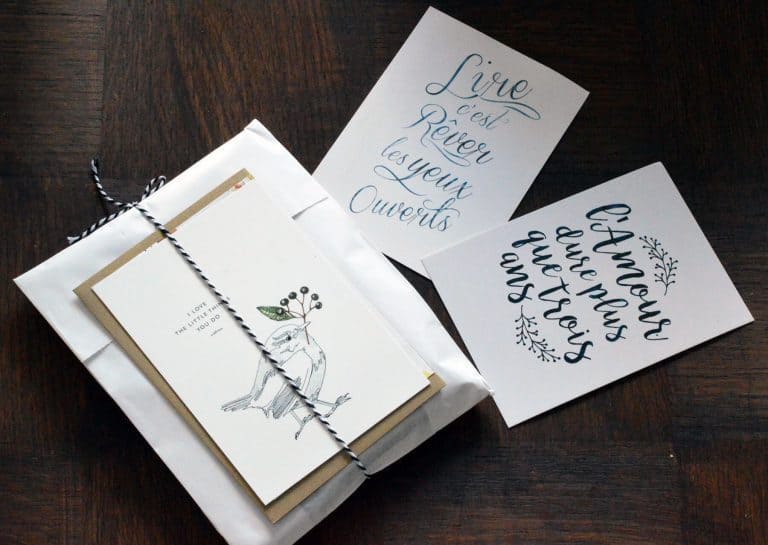 I LOVE
THE LITTLE THINGS
YOU DO
Lire
c'est
Rêver
les yeux
Ouverts
l'Amour
dure plus
que trois
ans